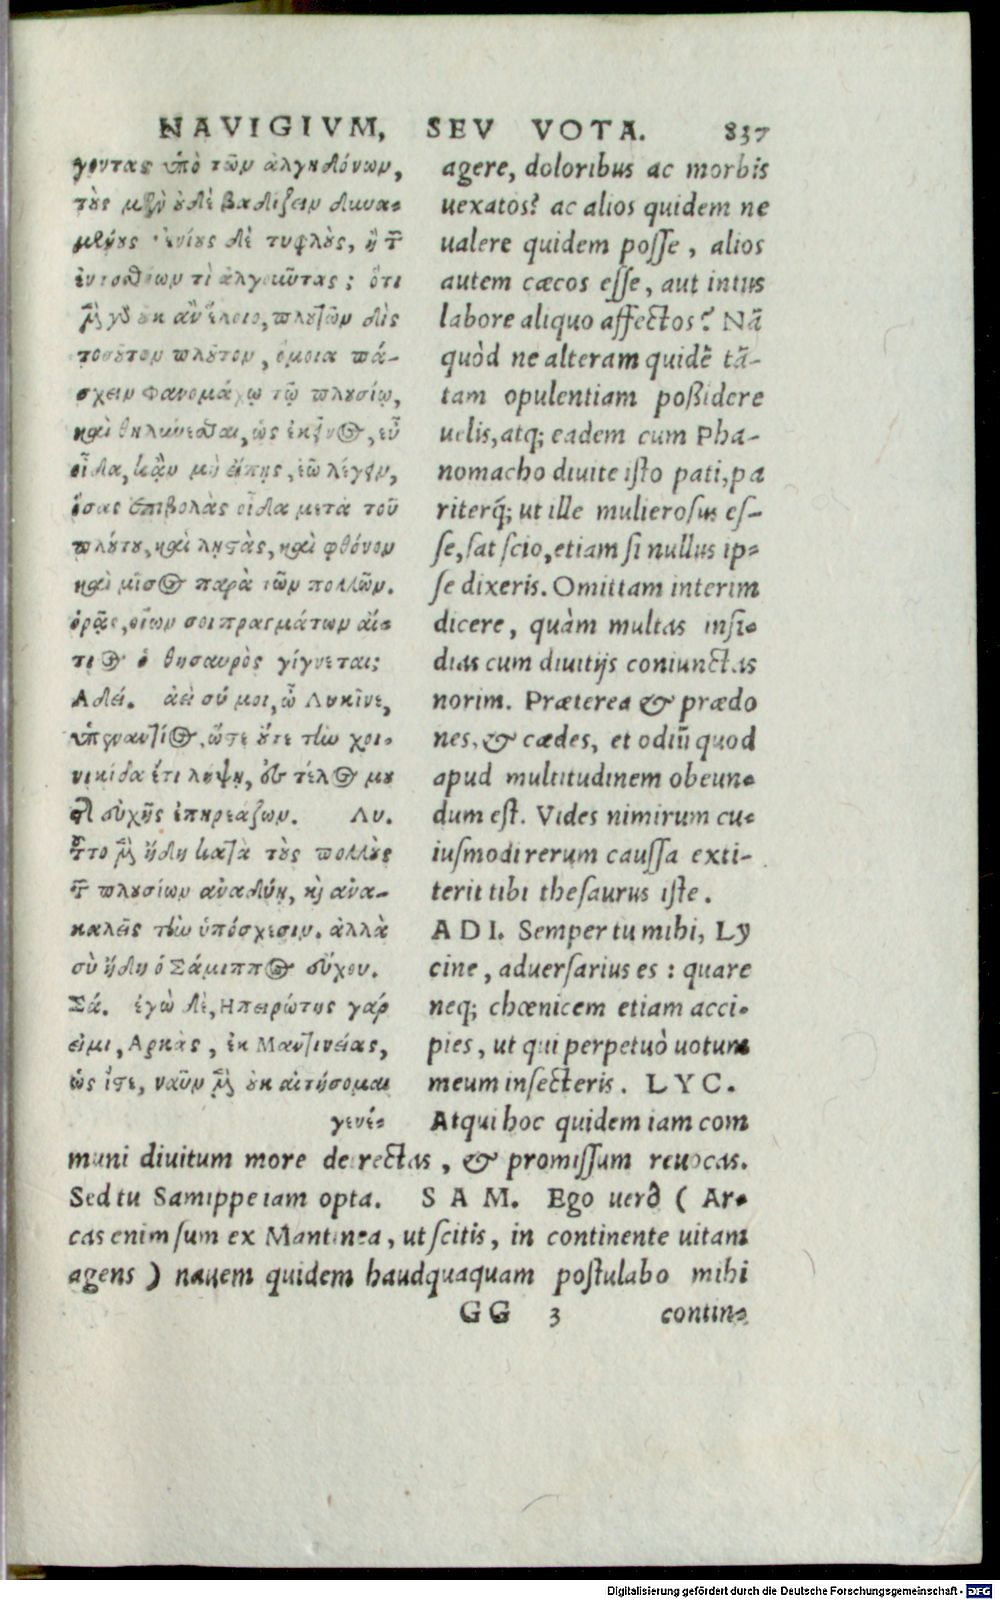 NAVIGIVM, SEV VOTA. 837
γοντας ὑπὸ τῶν ἀλγηδόνων,
τοὺς μὲν οὐδὲ βαδίζειν δυνα-
μένους, ἐνίους δὲ τυφλοὺς, ἢ τῶν
ἐντοσθίων τὶ ἀλγοῦντας; ὅτι
μὲν γὰρ οὐκ ἂν ἕλοιο, πλουτῶν δὶς
τοσοῦτον πλοῦτον, ὅμοια πά-
σχειν Φανομάχῳ τῷ πλουσίῳ,
καὶ θηλύνεσθαι, ὡς ἐκεῖνος, εὖ
οἶδα, κἂν μὴ εἴπῃς, ἐῶ λέγειν,
ὅσας ἐπιβολὰς οἶδα μετὰ τοῦ
πλούτου, καὶ λῃστὰς, καὶ φθόνον
καὶ μῖσος παρὰ τῶν πολλῶν.
ὁρᾷς, οἵων σοι πραγμάτων αἴ-
τιος ὁ θησαυρὸς γίγνεται;
Αδεί. ἀεὶ σύ μοι, ὦ Λυκῖνε,
ὑπεναντίος, ὥστε οὔτε τὴν χοι-
νικίδα ἔτι λήψῃ, ἐς τέλος μου
τῇ εὐχῇ ἐπηρεάζων. Λυ.
τοῦτο μὲν ἤδη κατὰ τοὺς πολλοὺς
τῶν πλουσίων ἀναδύῃ, καὶ ἀνα-
καλεῖς τὴν ὑπόσχεσιν. ἀλλὰ
σὺ ἤδη ὁ Σάμιππος εὔχου.
Σά. ἐγὼ δὲ, Ηπειρώτης γάρ
εἰμι, Αρκὰς, ἐκ Μαντινείας,
ὡς ἴστε, ναῦν μὲν οὐκ αἰτήσομαι
γενέ-
agere, doloribus ac morbis
uexatos? ac alios quidem ne
ualere quidem posse, alios
autem cæcos esse, aut intus
labore aliquo affectos? Nã
quòd ne alteram quidẽ tã-
tam opulentiam poßidere
uelis, atq; eadem cum Pha-
nomacho diuite isto pati, pa
riterq́; ut ille mulierosus es-
se, sat scio, etiam si nullus ip-
se dixeris. Omittam interim
dicere, quàm multas insi-
dias cum diuitijs coniunctas
norim. Præterea & prædo
nes, & cædes, et odiũ quod
apud multitudinem obeun-
dum est. Vides nimirum cu-
iusmodi rerum caussa exti-
terit tibi thesaurus iste.
ADI. Semper tu mihi, Ly
cine, aduersarius es: quare
neq; chœnicem etiam acci-
pies, ut qui perpetuò uotum
meum insecteris. LYC.
Atqui hoc quidem iam com
muni diuitum more detrectas, & promissum reuocas.
Sed tu Samippe iam opta. SAM. Ego uerò (Ar-
cas enim sum ex Mantinea, ut scitis, in continente uitam
agens) nauem quidem haudquaquam postulabo mihi
GG 3 contin-
Digitalisierung gefördert durch die Deutsche Forschungsgemeinschaft - DFG